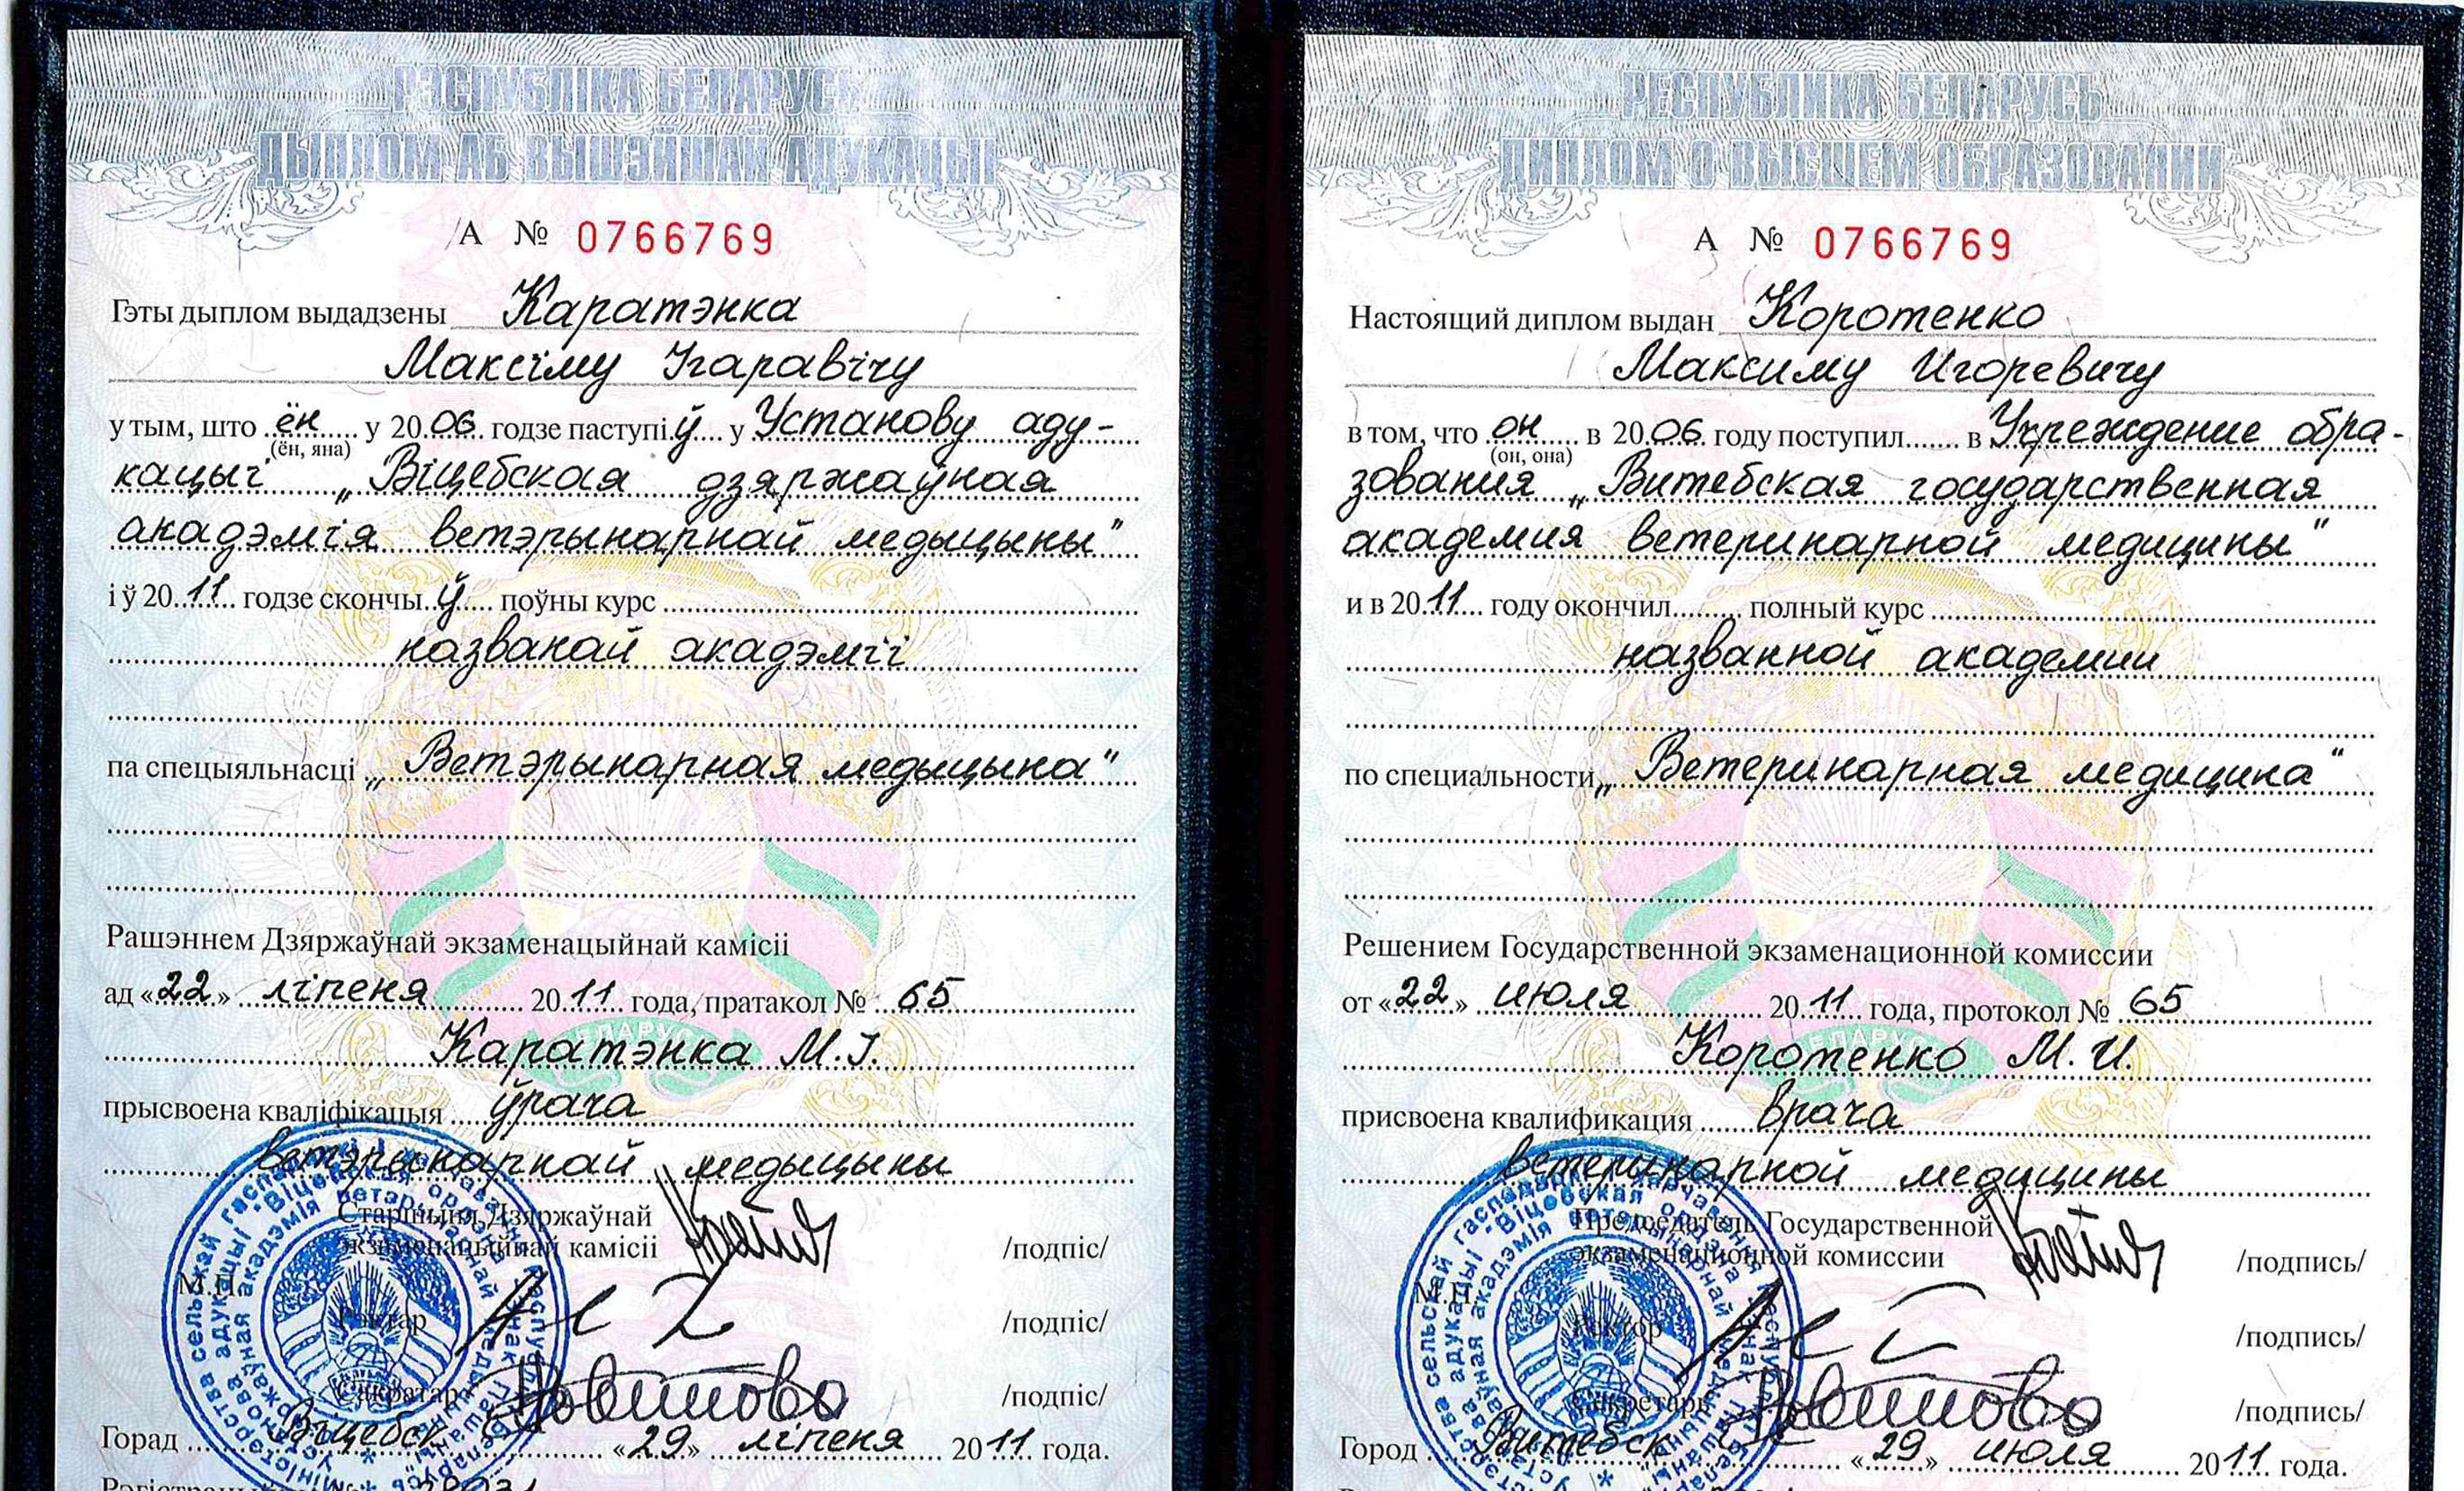 РЭСПУБЛІКА БЕЛАРУСЬ
ДЫПЛОМ АБ ВЫШЭЙШАЙ АДУКАЦЫІ
А № 0766769
Гэты дыплом выдадзены Каратэнка
Максіму Ігаравічу
у тым, што ён у 2006 годзе паступіў у Установу аду-
(ён, яна)
кацыі „Віцебская дзяржаўная
акадэмія ветэрынарнай медыцыны"
і ў 2011 годзе скончыў поўны курс
названай акадэміі
па спецыяльнасці „Ветэрынарная медыцына"
Рашэннем Дзяржаўнай экзаменацыйнай камісіі
ад «22» ліпеня 2011 года, пратакол № 65
Каратэнка М.І.
прысвоена кваліфікацыя ўрача
ветэрынарнай медыцыны
Старшыня Дзяржаўнай
экзаменацыйнай камісіі /подпіс/
М.П.
Рэктар /подпіс/
Сакратар /подпіс/
Горад Віцебск «29» ліпеня 2011 года.
РЕСПУБЛИКА БЕЛАРУСЬ
ДИПЛОМ О ВЫСШЕМ ОБРАЗОВАНИИ
А № 0766769
Настоящий диплом выдан Коротенко
Максиму Игоревичу
в том, что он в 2006 году поступил в Учреждение обра-
(он, она)
зования „Витебская государственная
академия ветеринарной медицины"
и в 2011 году окончил полный курс
названной академии
по специальности „Ветеринарная медицина"
Решением Государственной экзаменационной комиссии
от «22» июля 2011 года, протокол № 65
Коротенко М. И.
присвоена квалификация врача
ветеринарной медицины
Председатель Государственной
экзаменационной комиссии /подпись/
М.П.
Ректор /подпись/
Секретарь /подпись/
Город Витебск «29» июля 2011 года.